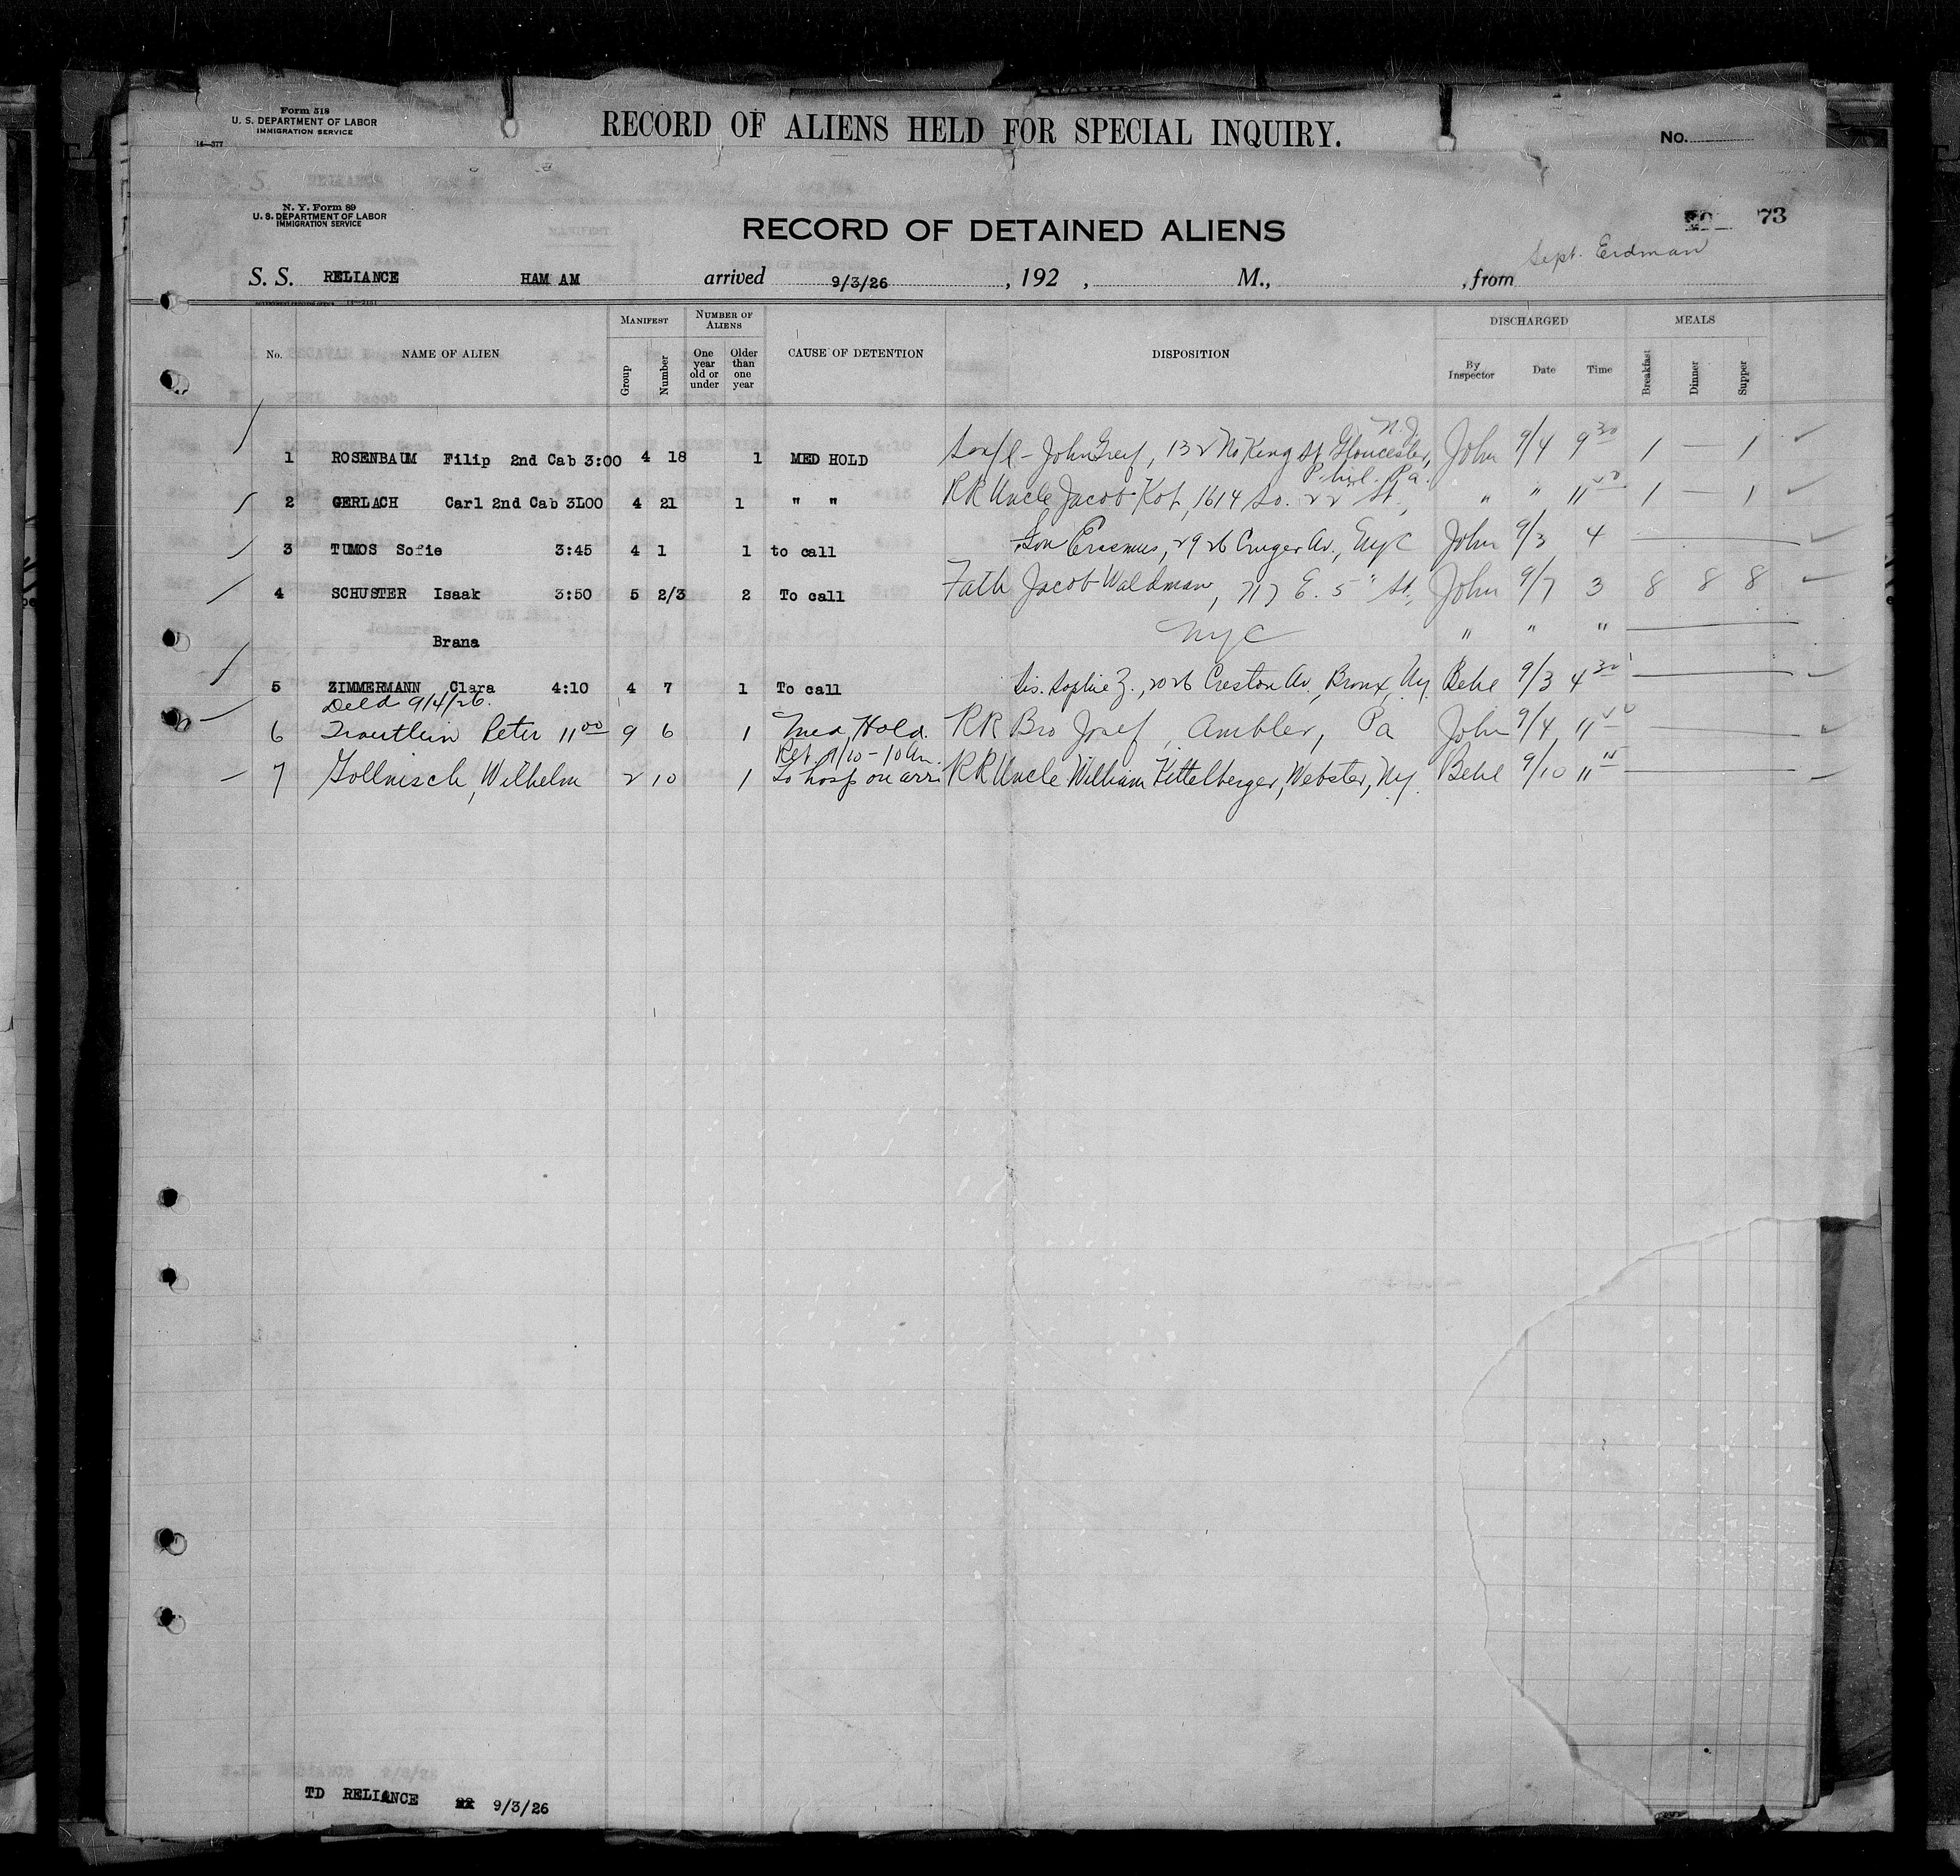 Form 518
U. S. DEPARTMENT OF LABOR
IMMIGRATION SERVICE
14—377
RECORD OF ALIENS HELD FOR SPECIAL INQUIRY.
No.
N. Y. Form 89
U. S. DEPARTMENT OF LABOR
IMMIGRATION SERVICE
RECORD OF DETAINED ALIENS
73
Sept. Erdman
S. S. RELIANCE HAM AM arrived 9/3/26, 192 , M., , from
No. NAME OF ALIEN MANIFEST Group Number NUMBER OF ALIENS One year old or under Older than one year CAUSE OF DETENTION DISPOSITION DISCHARGED By Inspector Date Time MEALS Breakfast Dinner Supper
N. J.
1 ROSENBAUM Filip 2nd Cab 3:00 4 18 1 MED HOLD John Greif, 132 No King St Gloucester, John 9/4 9 30 1 — 1
Phil. Pa.
2 GERLACH Carl 2nd Cab 3L00 4 21 1 " " RR Uncle Jacob Kot, 1614 So. 22 St., " " 11 00 1 — 1
3 TUMOS Sofie 3:45 4 1 1 to call Son Erasmus, 2926 Cruger Av., NyC John 9/3 4
4 SCHUSTER Isaak 3:50 5 2/3 2 To call Fath Jacob Waldman, 717 E. 5" St, John 9/7 3 8 8 8
Brana NyC " " "
5 ZIMMERMANN Clara 4:10 4 7 1 To call Sis. Sophie Z., 2026 Creston Av., Bronx, Ny. Behl 9/3 4 30
Deld 9/4/26.
6 Trautlein Peter 11 00 9 6 1 Med Hold. RR Bro Josef, Ambler, Pa John 9/4 11 00
Ret 9/10 - 10 Am.
7 Gollnisch, Wilhelm 2 10 1 To hosp on arri RR Uncle William Kittelberger, Webster, Ny. Behl 9/10 11 15
TD RELIANCE 9/3/26